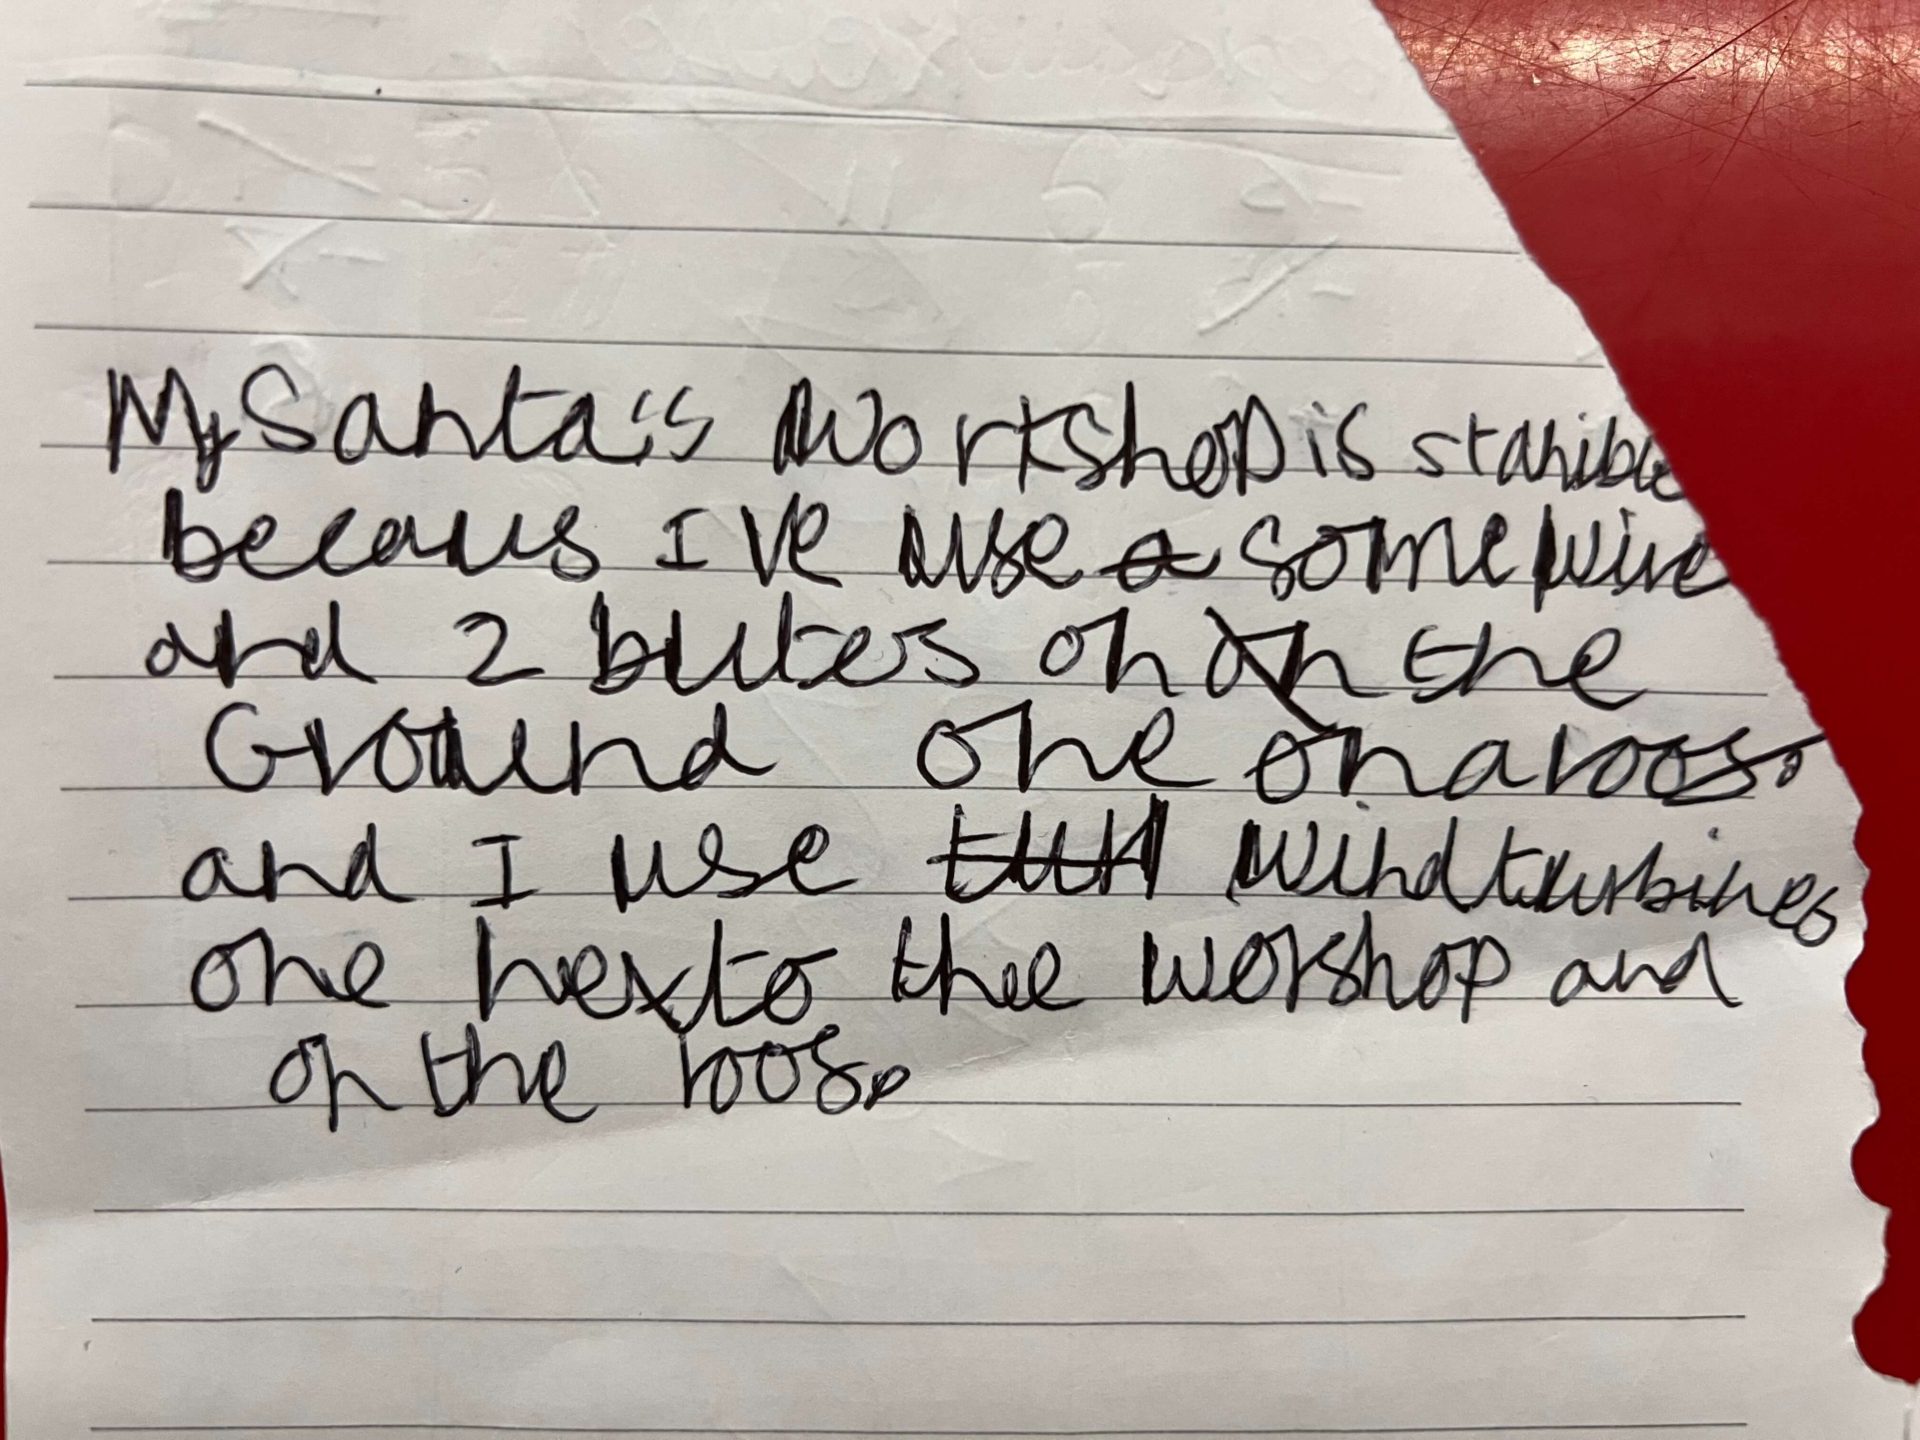 My Santa's Workshop is
becaus I've use a some wire
and 2 on on the
Ground one on a roof.
and I use tur Windturbines
one nexto the worshop and
on the roof.